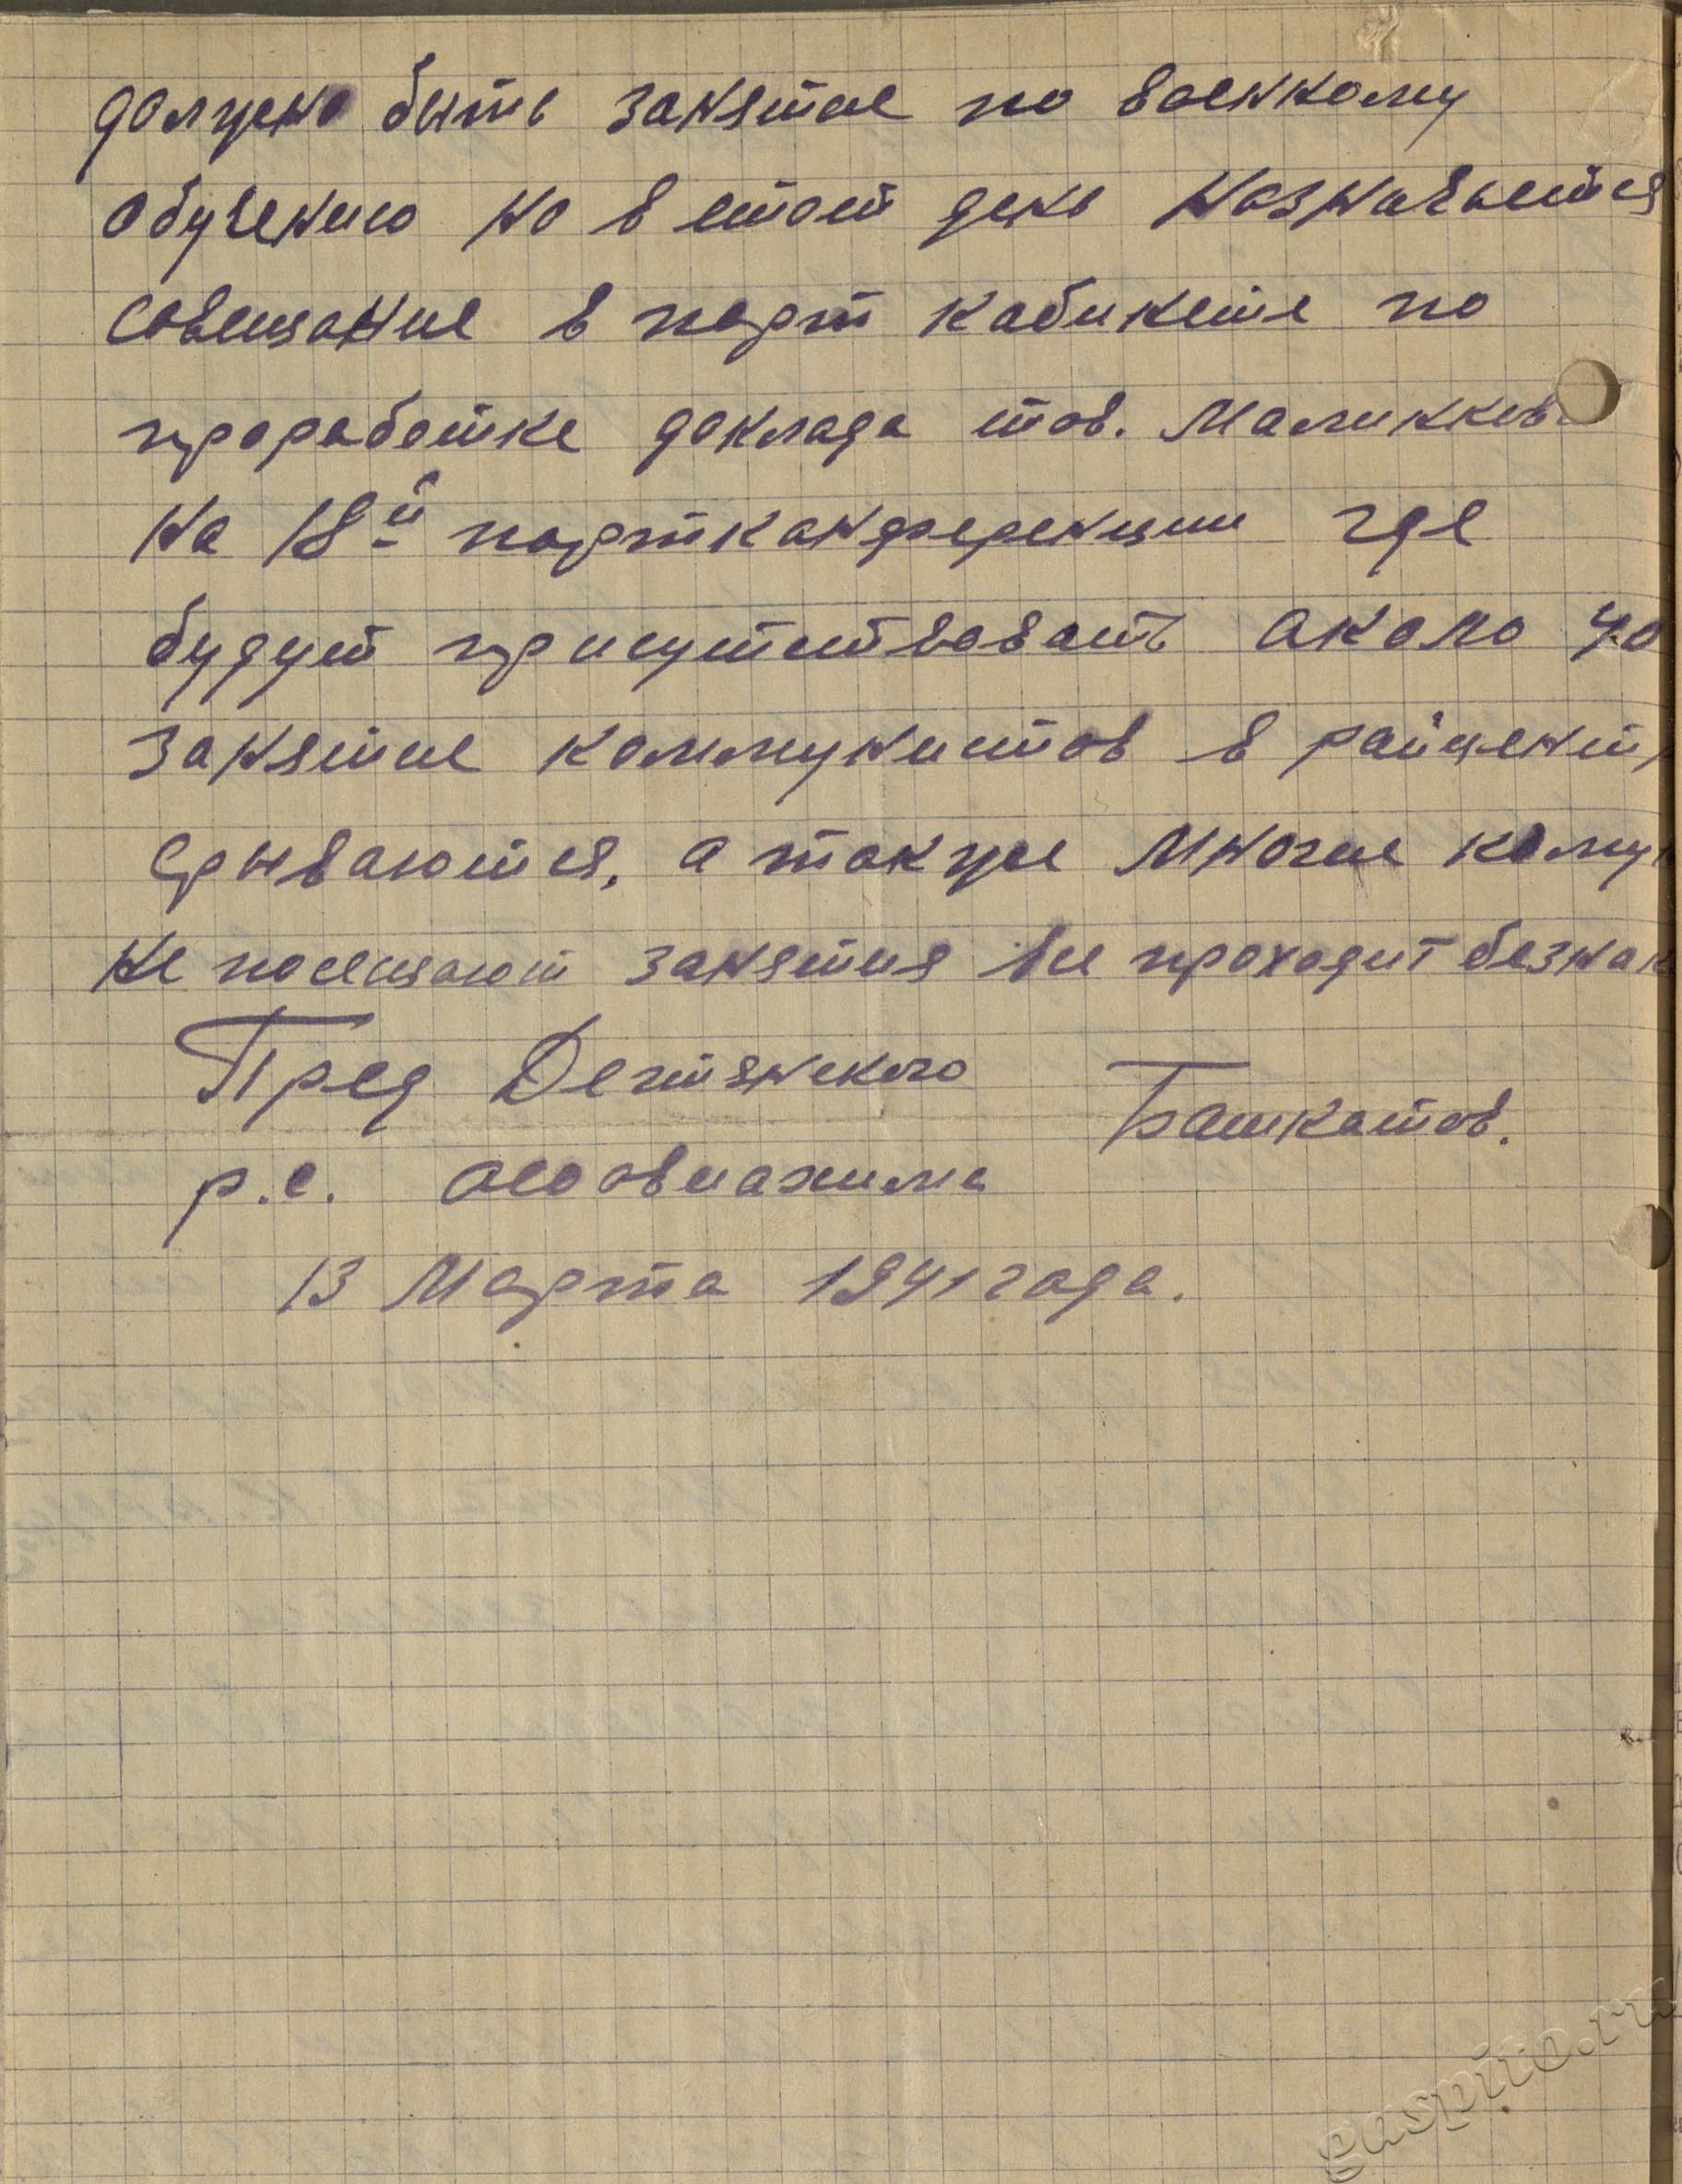 должно быть занятие по военному
обучению но в етот день назначается
совещание в парт кабинете по
проработке доклада тов. Маленков
на 18й партканференции где
будут присутствовать около 40
занятие коммунистов в райцент
срываются, а также многие кому
не посещают занятия все проходит безнак
Пред Дегтянского Башкатов.
р.с. Осоавиахима
13 Марта 1941 года.
gaspito.ru